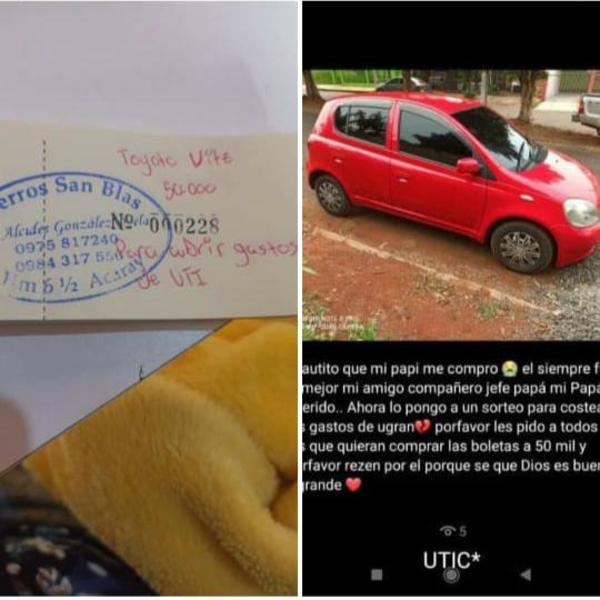 Toyota Vite
50.000
erros San Blas
Alcides González
Nº 000228
0975 817240
0984 317 55
Para cubrir gastos
de UTI
Km 5 1/2 Acaray
autito que mi papi me compro 😭 el siempre f
mejor mi amigo compañero jefe papá mi Papá
erido.. Ahora lo pongo a un sorteo para costea
s gastos de ugran💔 porfavor les pido a todos
s que quieran comprar las boletas a 50 mil y
rfavor rezen por el porque se que Dios es buen
grande ❤️
5
UTIC*